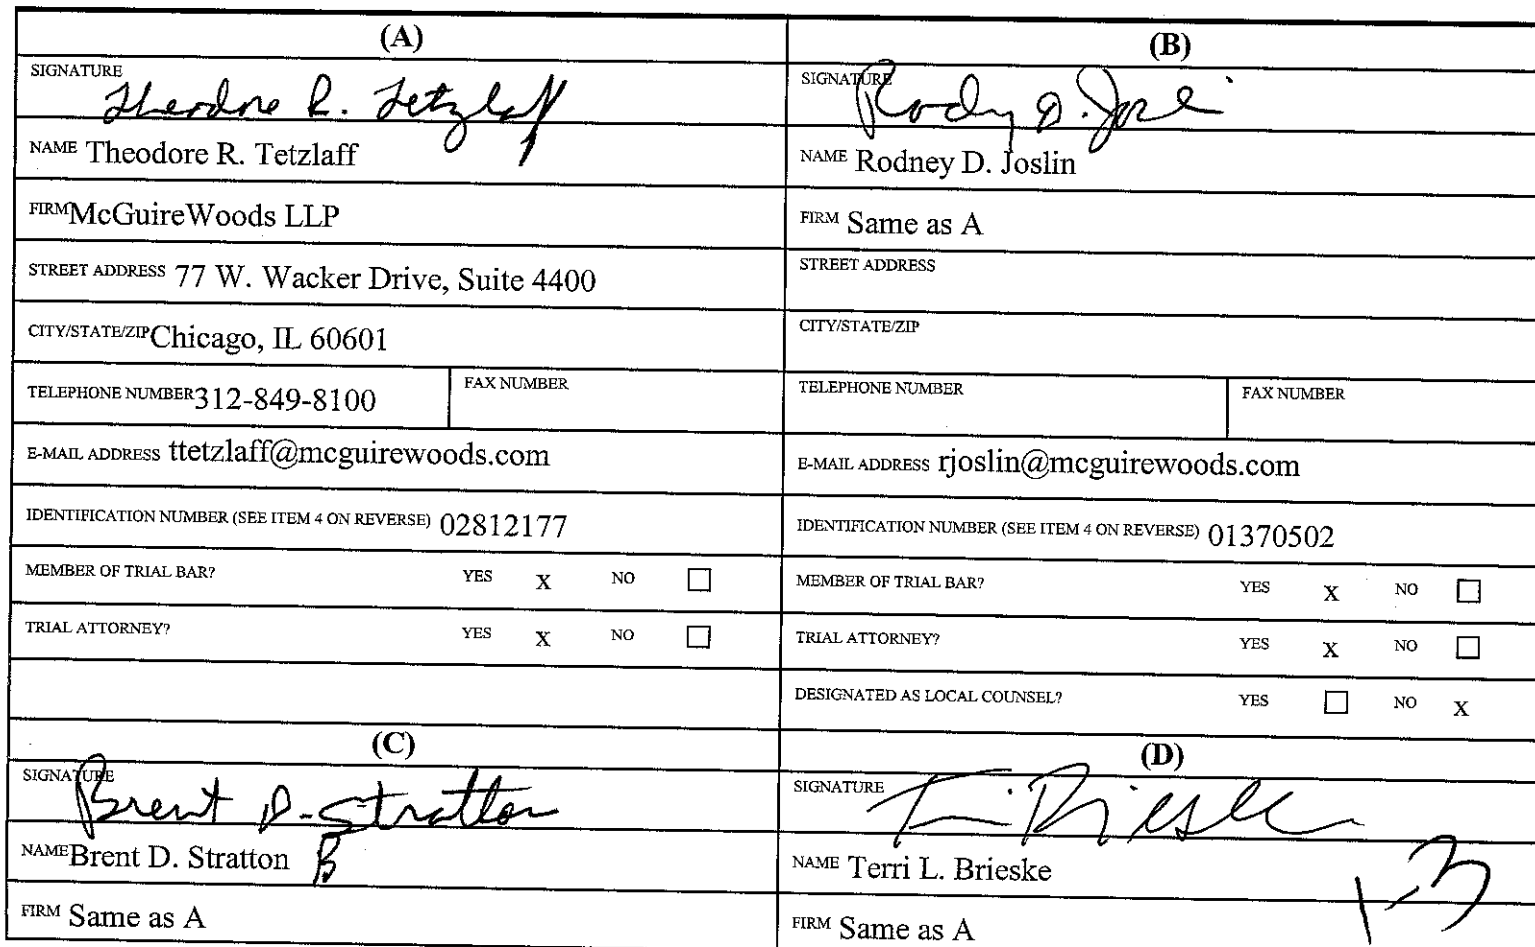 (A)
SIGNATURE Theodore R. Tetzlaff
NAME Theodore R. Tetzlaff
FIRM McGuireWoods LLP
STREET ADDRESS 77 W. Wacker Drive, Suite 4400
CITY/STATE/ZIP Chicago, IL 60601
TELEPHONE NUMBER 312-849-8100 FAX NUMBER
E-MAIL ADDRESS ttetzlaff@mcguirewoods.com
IDENTIFICATION NUMBER (SEE ITEM 4 ON REVERSE) 02812177
MEMBER OF TRIAL BAR? YES X NO ☐
TRIAL ATTORNEY? YES X NO ☐
(B)
SIGNATURE
NAME Rodney D. Joslin
FIRM Same as A
STREET ADDRESS
CITY/STATE/ZIP
TELEPHONE NUMBER FAX NUMBER
E-MAIL ADDRESS rjoslin@mcguirewoods.com
IDENTIFICATION NUMBER (SEE ITEM 4 ON REVERSE) 01370502
MEMBER OF TRIAL BAR? YES X NO ☐
TRIAL ATTORNEY? YES X NO ☐
DESIGNATED AS LOCAL COUNSEL? YES ☐ NO X
(C)
SIGNATURE Brent D. Stratton
NAME Brent D. Stratton
FIRM Same as A
(D)
SIGNATURE
NAME Terri L. Brieske
FIRM Same as A
1-3